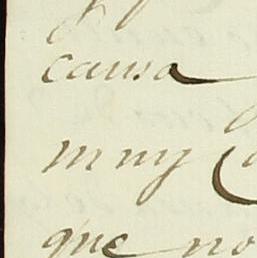 causa
muy
que no